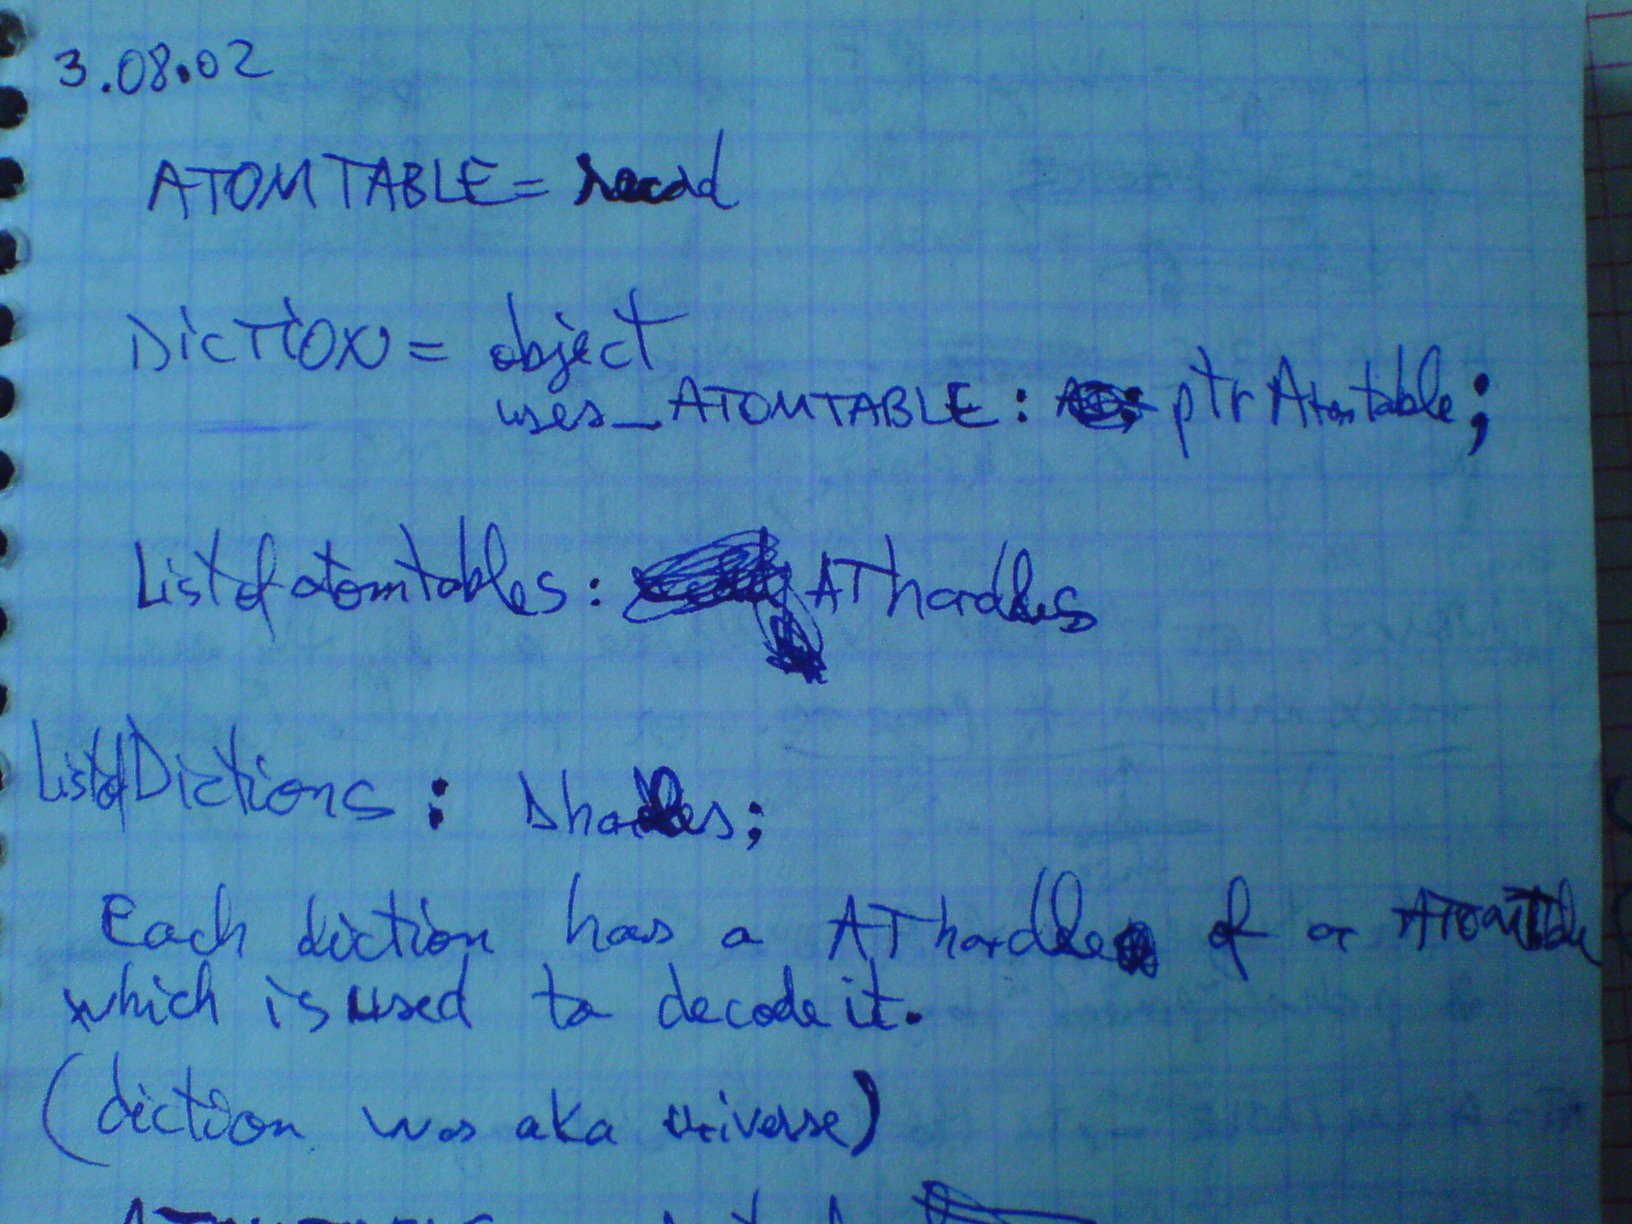 3.08.02
ATOMTABLE = record
DICTION = object
uses_ATOMTABLE: ptr Atomtable;
Listofatomtables: AThandles
ListofDictions: Dhandles;
Each diction has a AThandle of a ATOMTable
which is used to decode it.
(diction was aka universe)